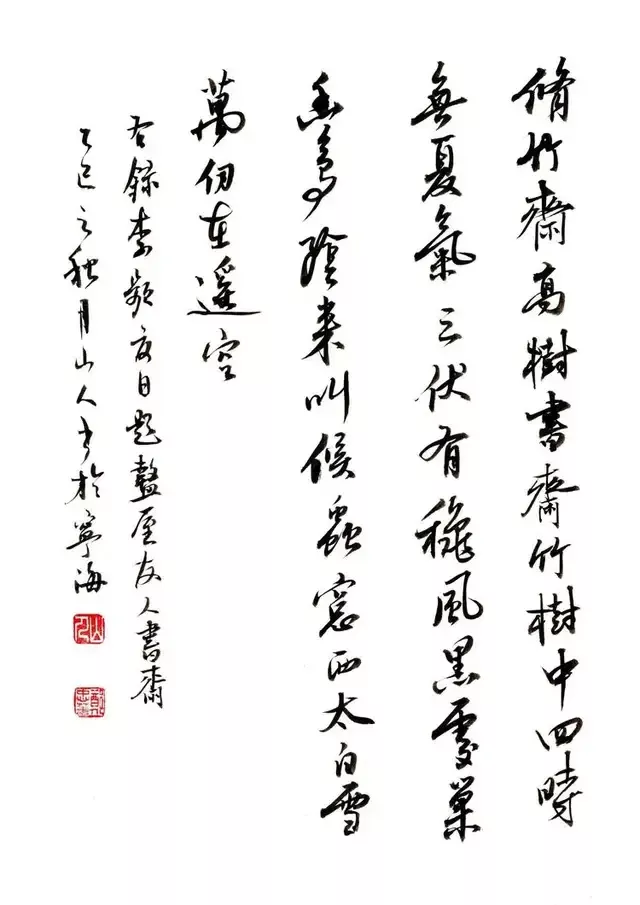 脩竹齋高樹書齋竹樹中四時
無夏氣三伏有穐風黑處巢
幽鳥陰来叫候蟲窓西太白雪
萬仞在遥空
右録李頻夏日題盩厔友人書齋
乙巳之秋月山人書於寧海